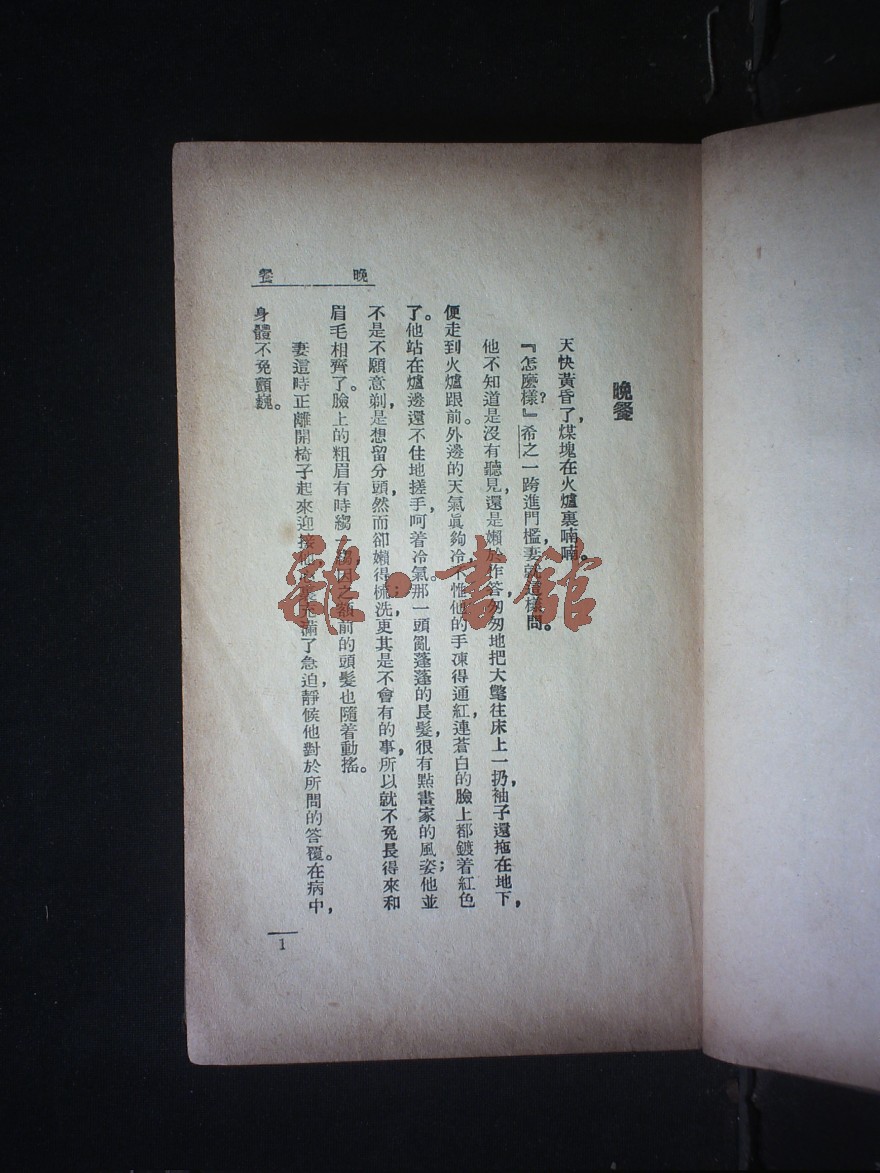 晚餐
晚餐
天快黃昏了，煤塊在火爐裏喃喃。
『怎麼樣？』希之一跨進門檻，妻就這樣問。
他不知道是沒有聽見，還是嬾於作答，匆匆地把大氅往床上一扔，袖子還拖在地下，
便走到火爐跟前。外邊的天氣眞夠冷，不惟他的手凍得通紅，連蒼白的臉上都鍍着紅色
了。他站在爐邊還不住地搓手，呵着冷氣。那一頭亂蓬蓬的長髮，很有點畫家的風姿；他並
不是不願意剃，是想留分頭，然而卻嬾得梳洗；更其是不會有的事，所以就不免長得來和
眉毛相齊了。臉上的粗眉有時縐縐，因之額前的頭髮也隨着動搖。
妻這時正離開椅子起來迎接他，滿了急迫，靜候他對於所問的答覆。在病中，
身體不免顫巍。
1
雜·書館